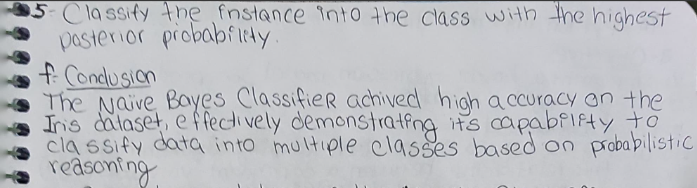 5- Classify the instance into the class with the highest
posterior probability.
f- Conclusion
The Naive Bayes Classifier achived high accuracy on the
Iris dataset, effectively demonstrating its capability to
classify data into multiple classes based on probabilistic
reasoning